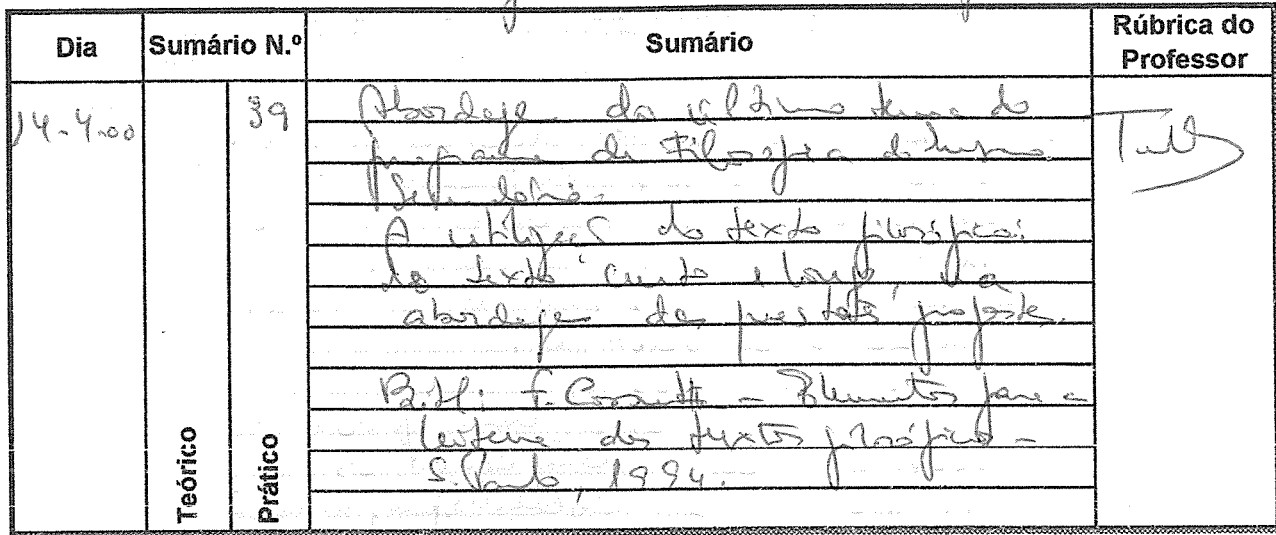 Dia Sumário N.º Sumário Rúbrica do Professor
14-4-00 39 Abordagem do último tema do
programa de Filosofia do Ensino
Secundário.
A utilização do texto filosófico:
do texto curto e longo, a
abordagem das questões propostas.
Bibl: F. Cossutta - Elementos para a
leitura dos textos filosóficos -
S. Paulo, 1994.
Teórico
Prático